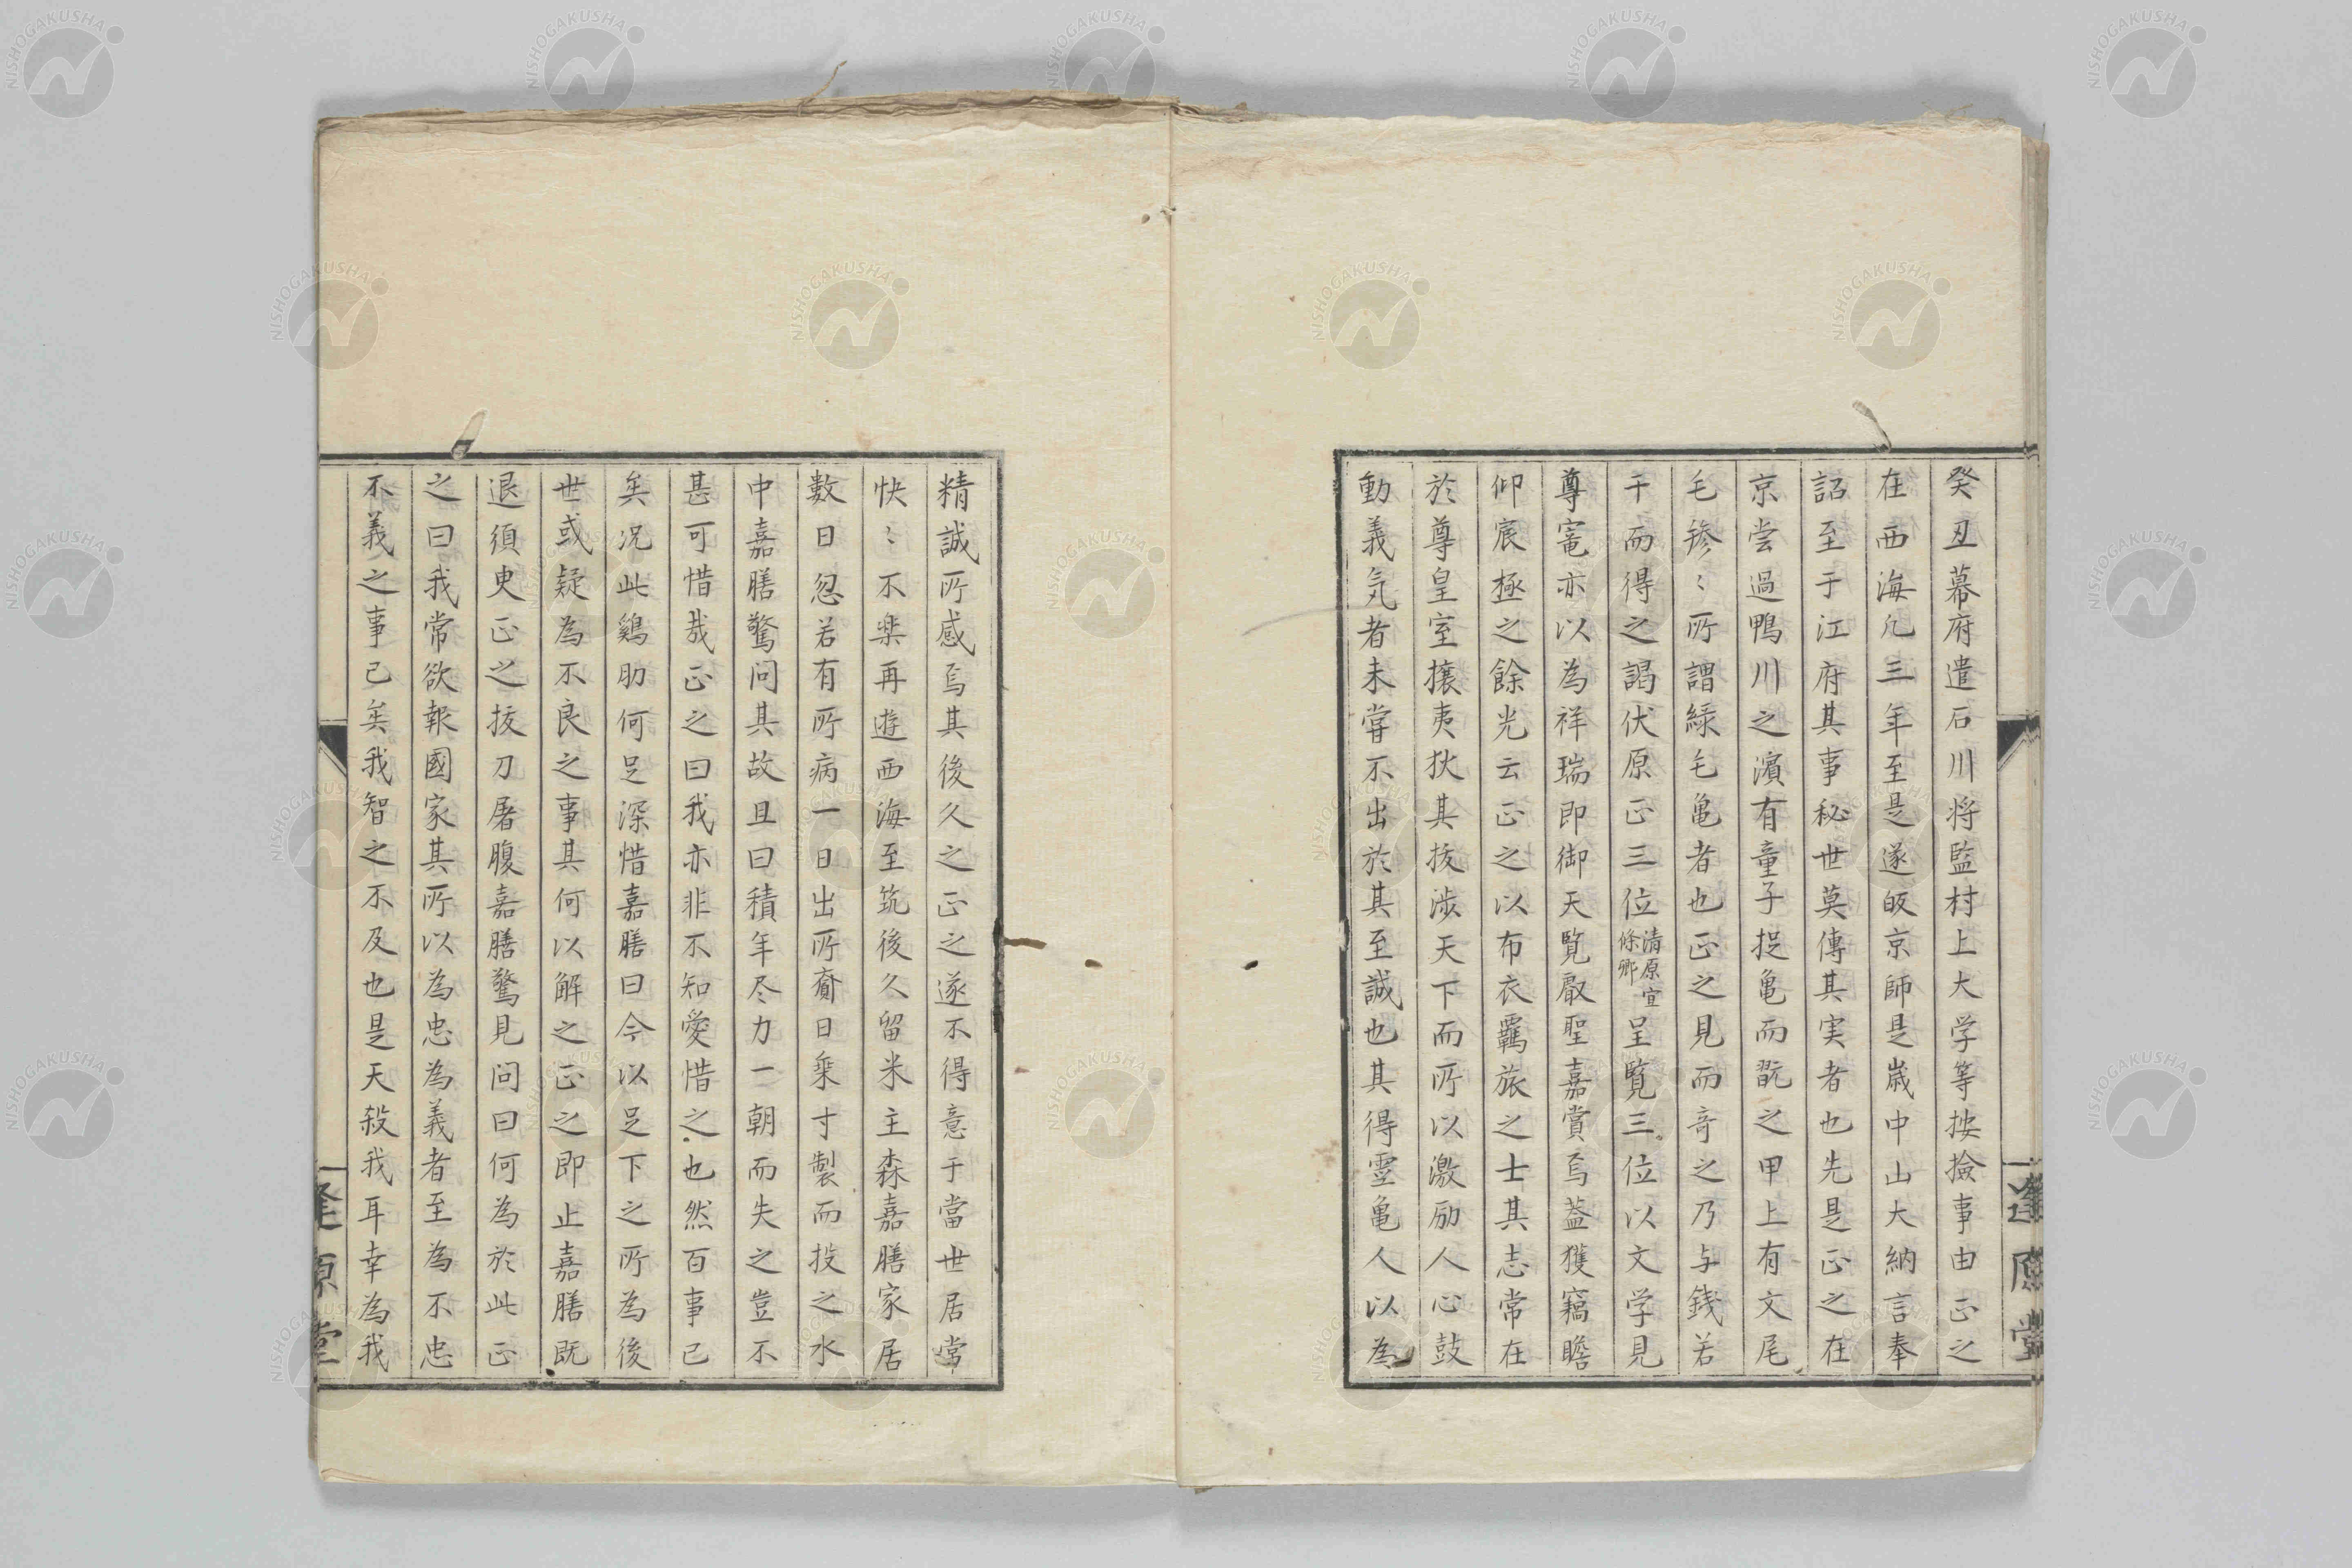 癸丑幕府遣石川将監村上大学等按撿事由正之
在西海凢三年至是遂皈京師是歳中山大納言奉
詔至于江府其事秘世莫傳其実者也先是正之在
京嘗過鴨川之濵有童子捉亀而翫之甲上有文尾
毛毵〻所謂緑毛亀者也正之見而竒之乃与銭若
干而得之謁伏原正三位清原宣條卿呈覧三位以文学見
尊寵亦以為祥瑞即御天覧叡聖嘉賞焉葢獲竊瞻
仰宸極之餘光云正之以布衣羈旅之士其志常在
於尊皇室攘夷狄其抜渉天下而所以激励人心鼓
動義気者未嘗不出於其至誠也其得霊亀人以為
精誠所感焉其後久之正之遂不得意于當世居常
快〻不楽再遊西海至筑後久留米主森嘉膳家居
數日忽若有所病一日出所齎日乗寸製而投之水
中嘉膳驚问其故且曰積年尽力一朝而失之豈不
甚可惜哉正之曰我亦非不知愛惜之也然百事已
矣况此鷄肋何足深惜嘉膳曰今以足下之所為後
世或疑為不良之事其何以解之正之即止嘉膳既
退須臾正之抜刀屠腹嘉膳驚見问曰何為於此正
之曰我常欲報國家其所以為忠為義者至為不忠
不義之事已矣我智之不及也是天殺我耳幸為我
逢原堂
逢原堂
NISHOGAKUSHA